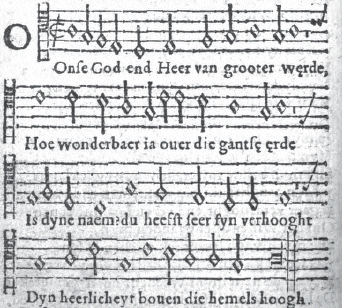 O
Onſe God end Heer van grooter węrde,
Hoe wonderbaer ia ouer die gantſę ęrde
Is dyne naem? du heefſt ſeer ſyn verhooght
Dyn heerlicheyt bouen die hemels hoogh